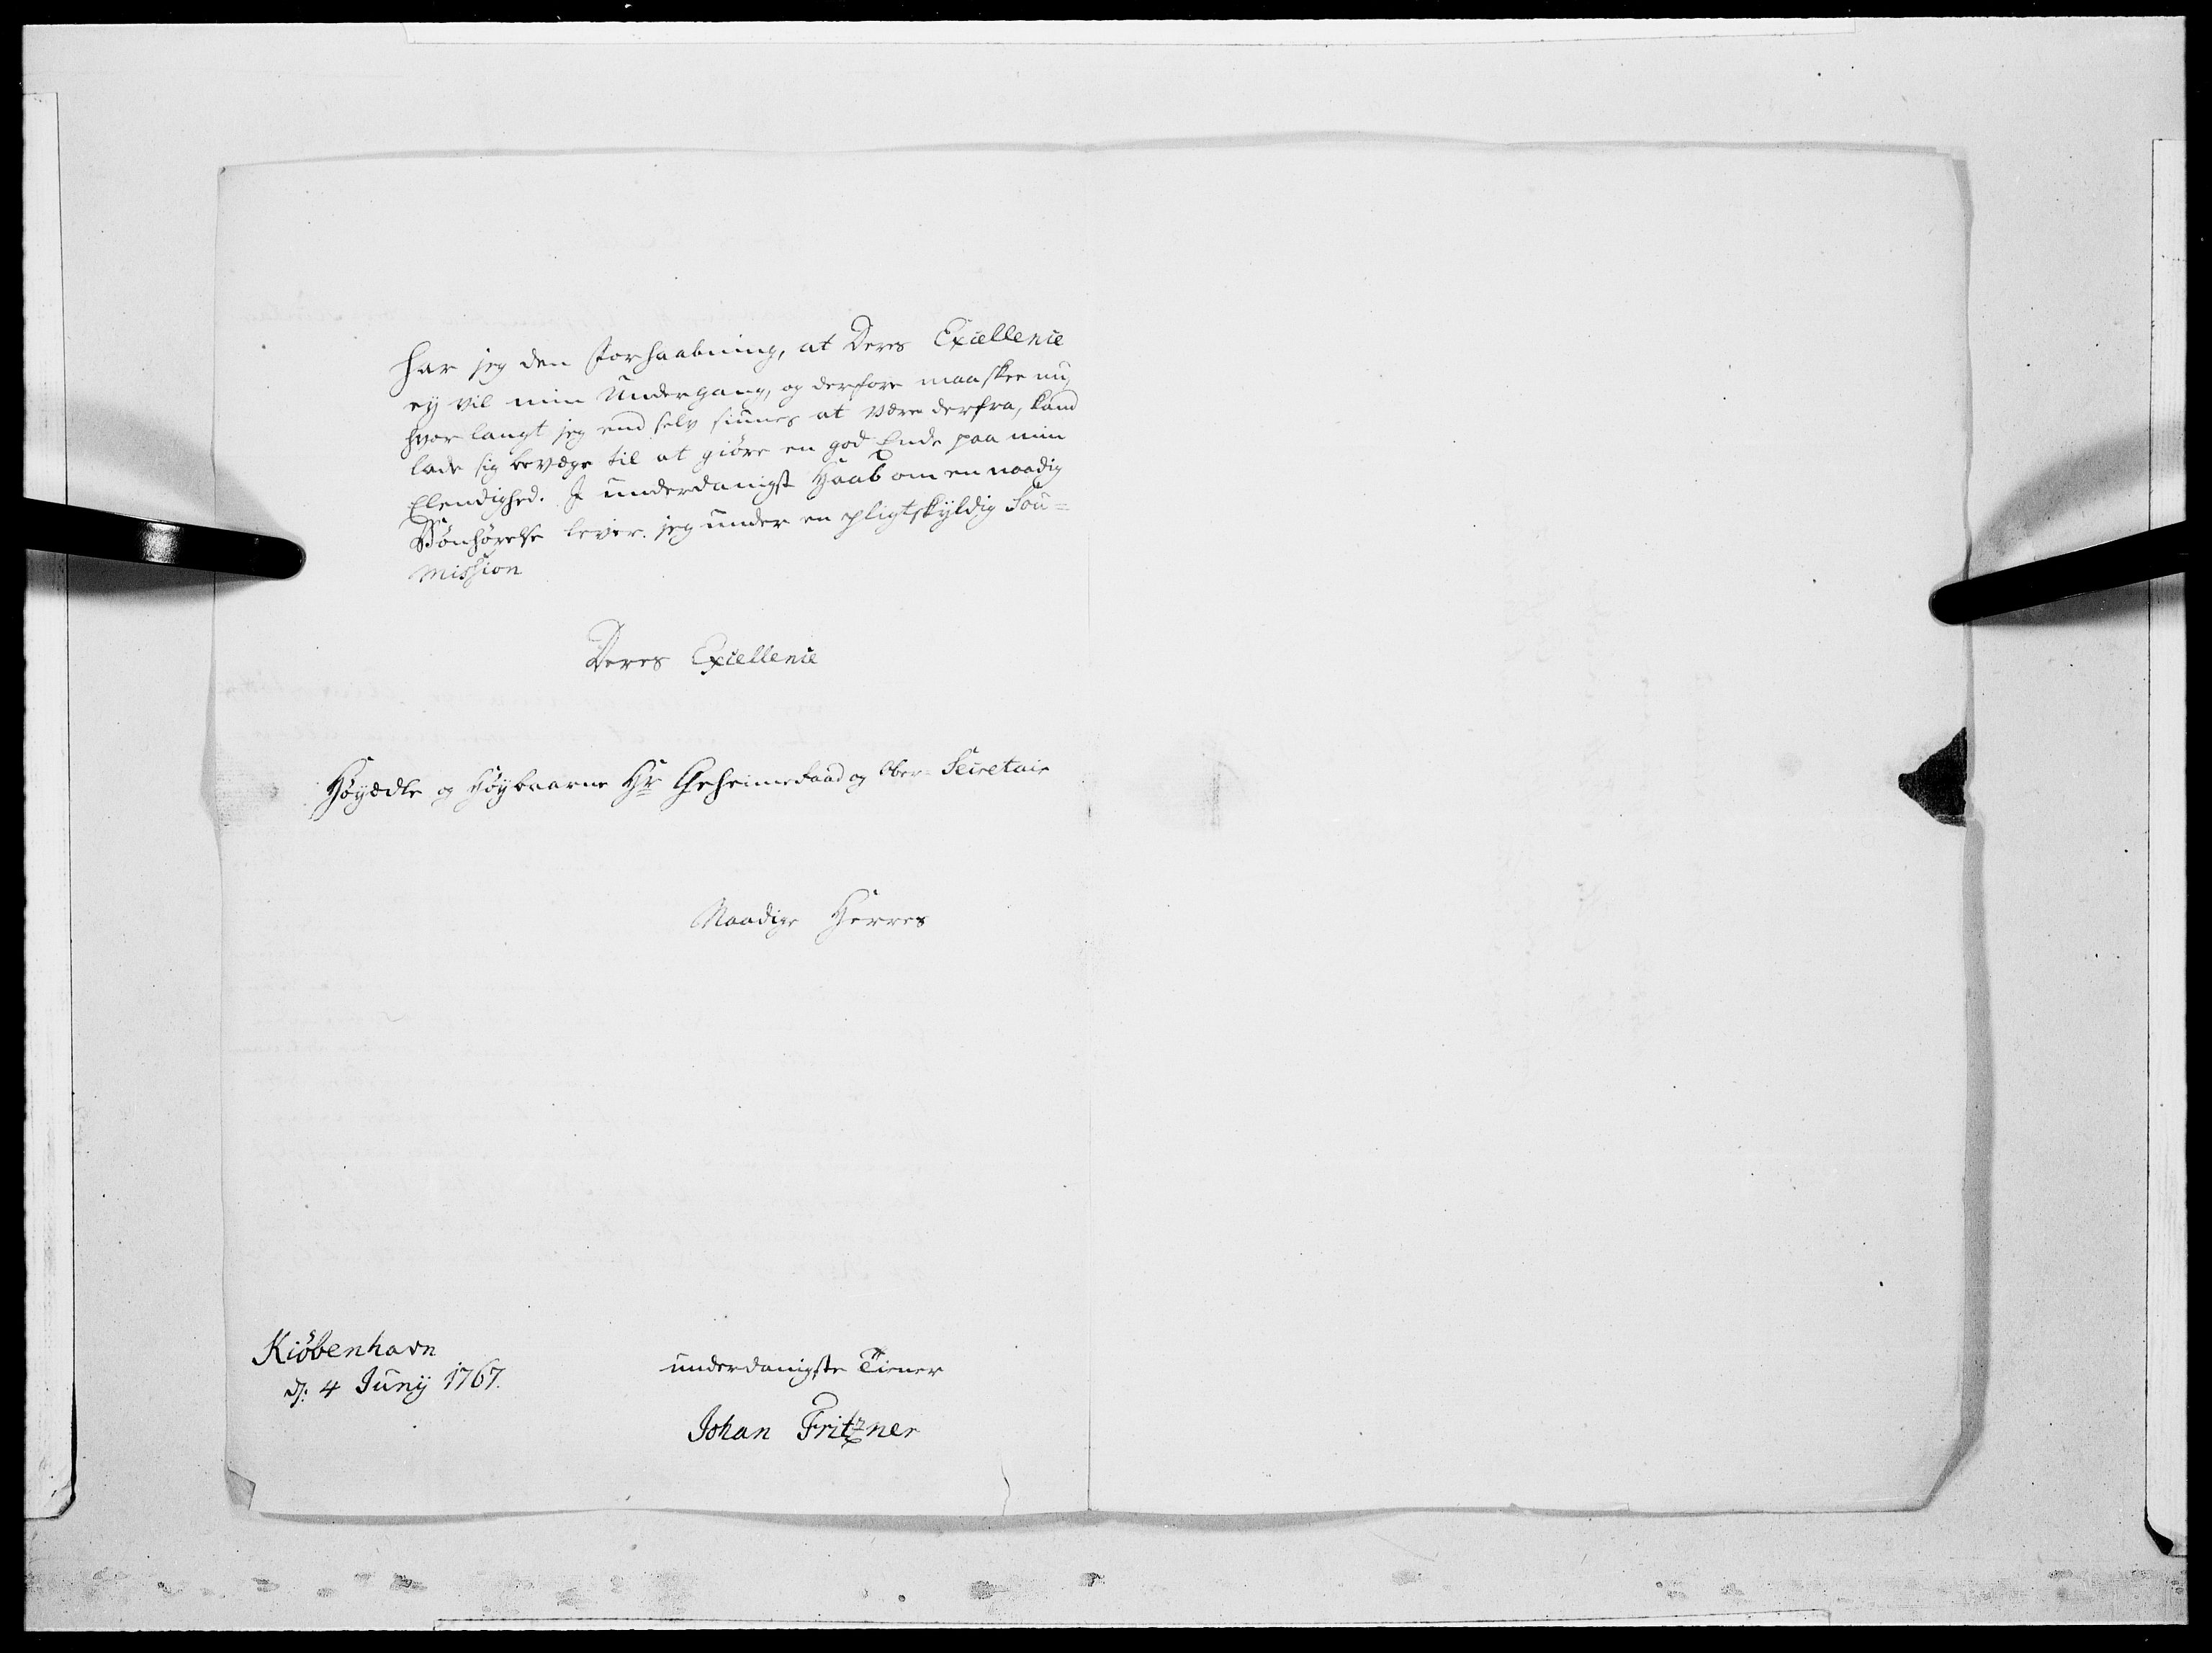 har jeg den Forhaabning, at Deres Excellence
ey vil min Undergang, og derfore maa skee nu,
hvor langt jeg end selv siunes at være derfra, kand
lade sig bevæge til at giøre en god Ende paa min
Elendighed. I underdanigst Haab om en naadig
Bønhørelse lever jeg under en pligtskyldig Sou=
mission
Deres Excellence
Høyædle og Høybaarne Hr Geheimeraad og Ober-Secretair
Naadige Herres
Kiöbenhavn
d: 4 Juny 1767.
underdanigste Tiener
Johan Fritzner